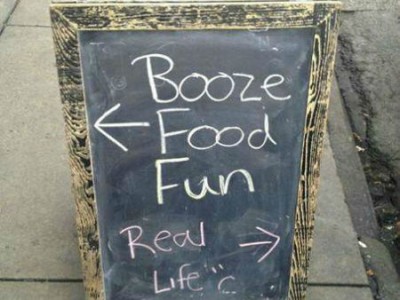 Booze
← Food
Fun
Real →
Life